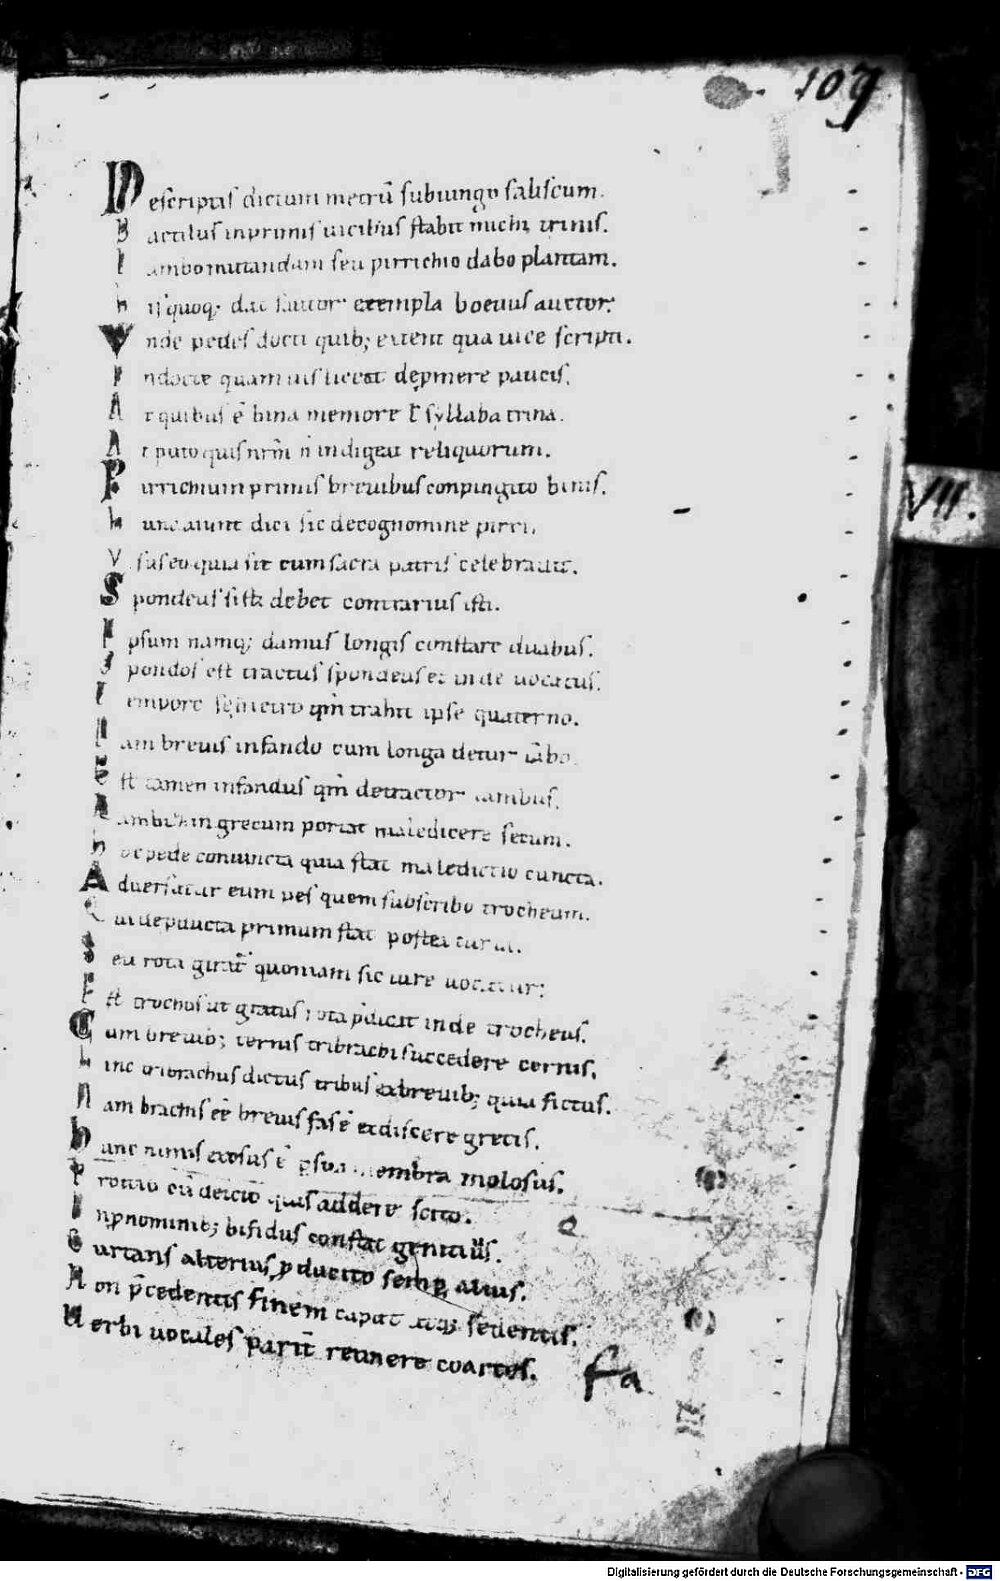 109
Descriptis dictum metrū subiungo saliscum.
Dactilus inprimis uicibus stabit michi trinis.
Iambo mutandam seu pirrichio dabo plantam.
quoq; dat exempla boeuus auctor.
Vnde pedes docti quib; extent qua uice scripti.
Indocte quamuis liceat depmere paucis.
At quibus ē bina memore ł syllaba trina.
At puto quis nrm̄ n̄ indiget reliquorum.
Pirrichium primis breuibus conpingito binis.
hunc aiunt dici sic de cognomine pirri.
Vsus eo quia sit cum sacra patris celebrauit.
Spondeus debet contrarius isti.
Ipsum namq; damus longis constare duabus.
Spondos est tractus spondeus et inde uocatus.
Tempore qm̄ trahit ipse quaterno.
Nam breuis infando cum longa detur iābo.
Est tamen infandus qm̄ detractor iambus.
grecum portat maledicere secum.
hoc pede coniuncta quia stat maledictio cuncta.
Aduersatur eum pes quem subscribo trocheum.
primum stat postea
Seu rota giratr̄ quoniam sic iure uocatur;
Est trochos ut gratus rota inde trocheus.
Cum breuib; ternis tribrachi succedere cernis.
hinc tribrachus dictus tribus ex breuib; quia fictus.
Nam brachis eē breuis fas ē ediscere grecis.
hanc nimis exosus ē membra molosus.
quis addere scito.
In pnominib; bifidus constat genitiuus.
Curtans alterius pducito semp alius.
Non p̄cedentis finem capiat sedentis.
Verbi uocales parit̄ reunere coartes.
fa
VII.
Digitalisierung gefördert durch die Deutsche Forschungsgemeinschaft - DFG